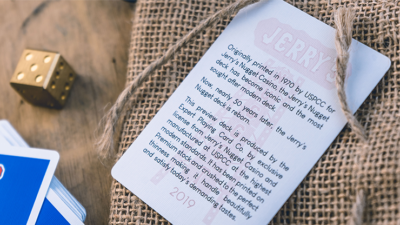 JERRY'S
Originally printed in 1970 by USPCC for
Jerry's Nugget Casino, the Jerry's Nugget
deck has become iconic and the most
sought after modern deck.
Now, nearly 50 years later, the Jerry's
Nugget Deck is reborn.
This preview deck is produced by the
Expert Playing Card Co. by exclusive
license from Jerry's Nugget Casino and
manufactured at USPCC at the highest
modern standards. It has been printed on
Premium stock and crushed to the perfect
thinness, making it handle beautifully
and satisfy today's demanding tastes.
2019